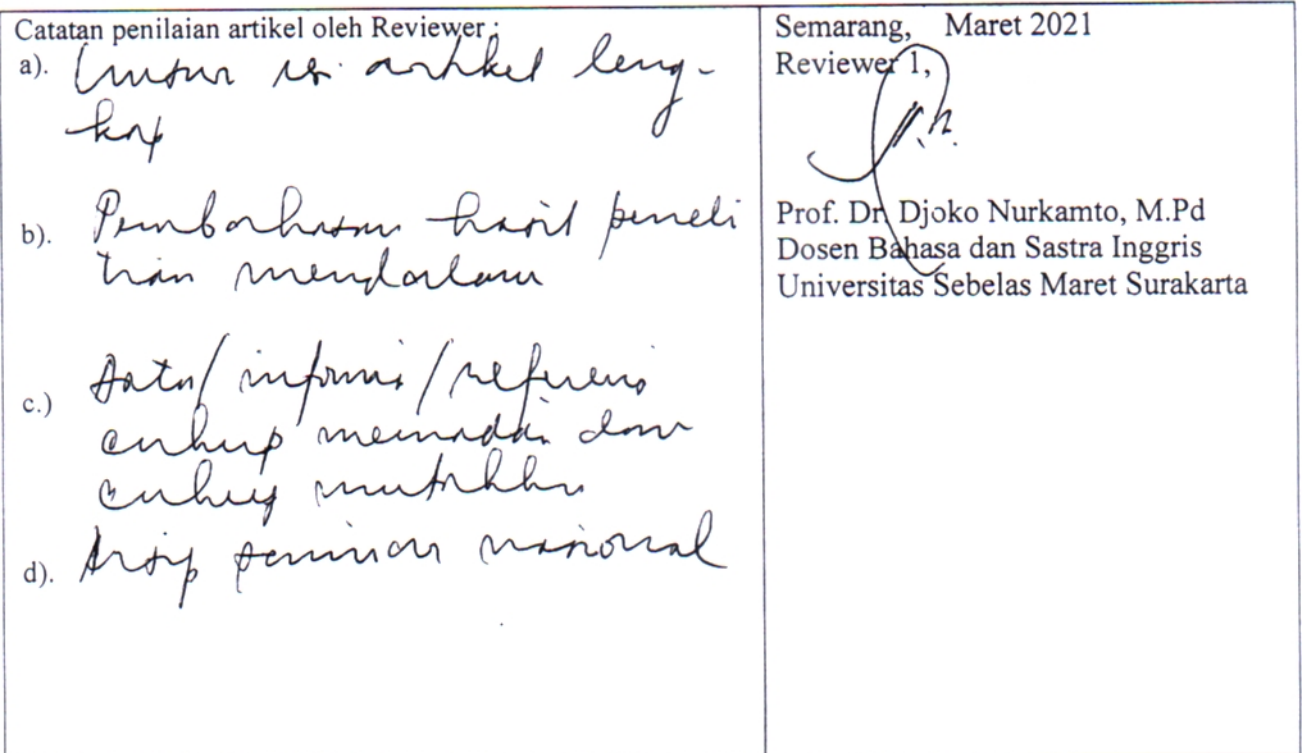 Catatan penilaian artikel oleh Reviewer :
a). Unsur isi artikel leng-
kap
b). Pembahasan hasil peneli
tian mendalam
c.) Data/informasi/referensi
cukup memadai dan
cukup mutakhir
d). seminar nasional
Semarang, Maret 2021
Reviewer 1,
Prof. Dr. Djoko Nurkamto, M.Pd
Dosen Bahasa dan Sastra Inggris
Universitas Sebelas Maret Surakarta